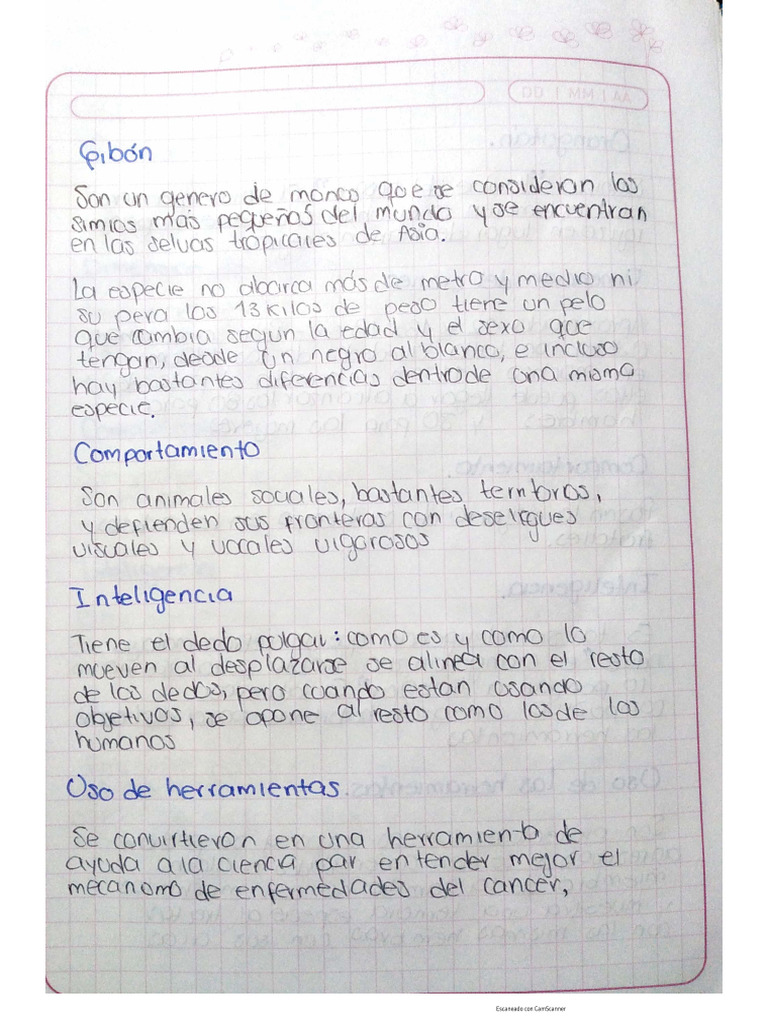 DD | MM | AA
Gibón
Son un genero de monco que se consideran los
simios mas pequeños del mundo y se encuentran
en las selvas tropicales de Asia.
La especie no abarca más de metro y medio ni
su pera los 13 kilos de peso tiene un pelo
que cambia segun la edad y el sexo que
tengan, desde un negro al blanco, e incluso
hay bastantes diferencias dentrode una misma
especie.
Comportamiento
Son animales sociales, bastantes
y defienden sus fronteras con
visuales y vocales vigorosos
Inteligencia
Tiene el dedo pulgar: como es y como lo
mueven al desplazarse se alinea con el resto
de los dedos, pero cuando estan usando
objetivos, se opone al resto como los de los
humanos
Uso de herramientas.
Se convirtieron en una herramienta de
ayuda a la ciencia par entender mejor el
mecanomo de enfermedades del cancer,
Escaneado con CamScanner